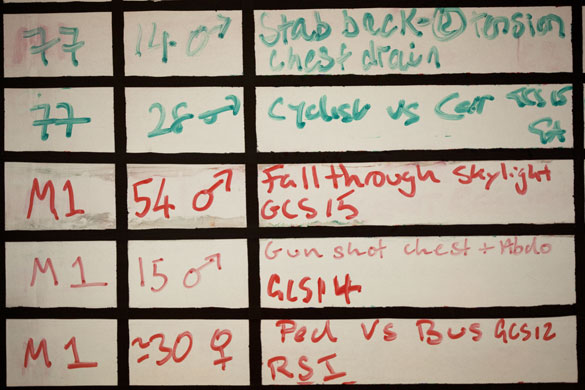 77 14 ♂ Stab back - Ⓡ tension
chest drain
77 28 ♂ Cyclist vs Car GCS 15
M1 54 ♂ Fall through skylight
GCS 15
M1 15 ♂ Gun shot chest + Abdo
GCS 14
M1 ≈30 ♀ Ped vs Bus GCS 12
RSI